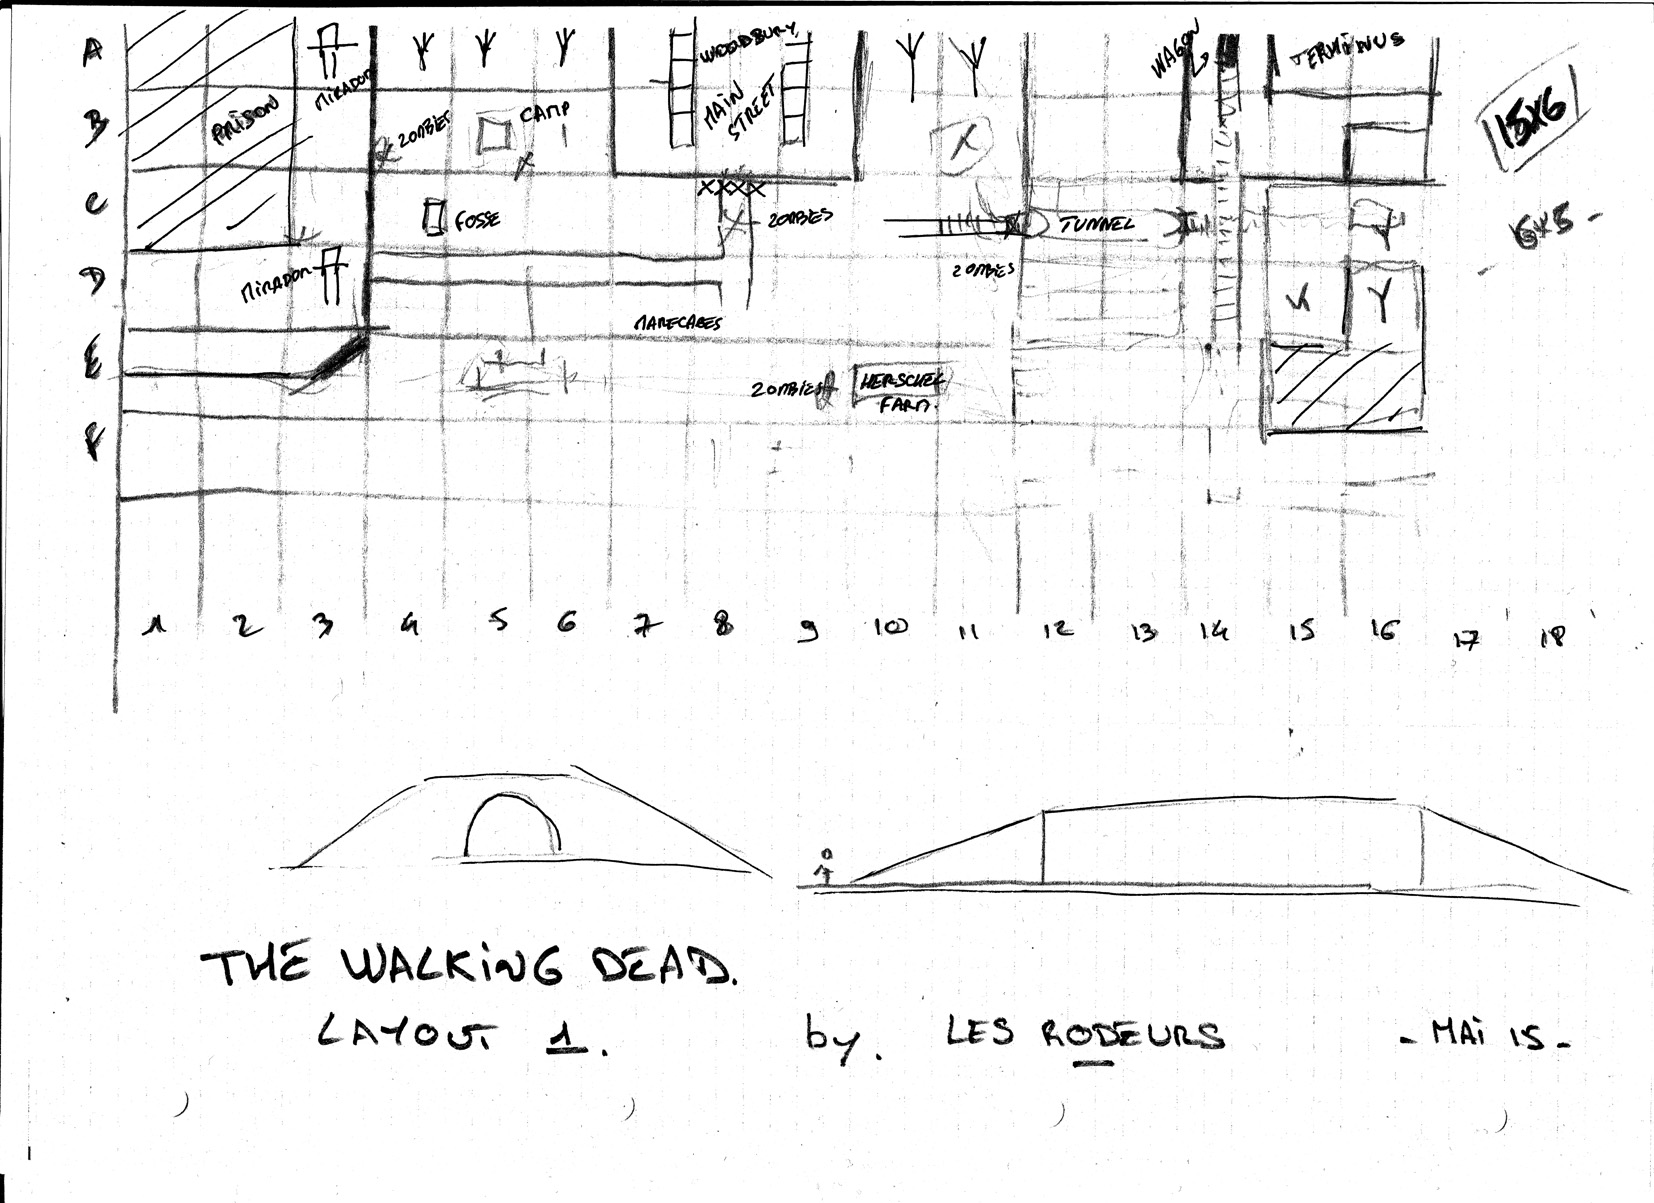 A
B
C
D
E
F
PRISON
MIRADOR
MIRADOR
ZOMBIES
CAMP
FOSSE
WOODBURY
MAIN
STREET
ZOMBIES
MARECAGES
ZOMBIES
HERSCHEL
FARM.
ZOMBIES
TUNNEL
WAGON
TERMINUS
15X6
6x5-
1 2 3 4 5 6 7 8 9 10 11 12 13 14 15 16 17 18
THE WALKING DEAD.
LAYOUT 1. by. LES RODEURS - MAI 15 -